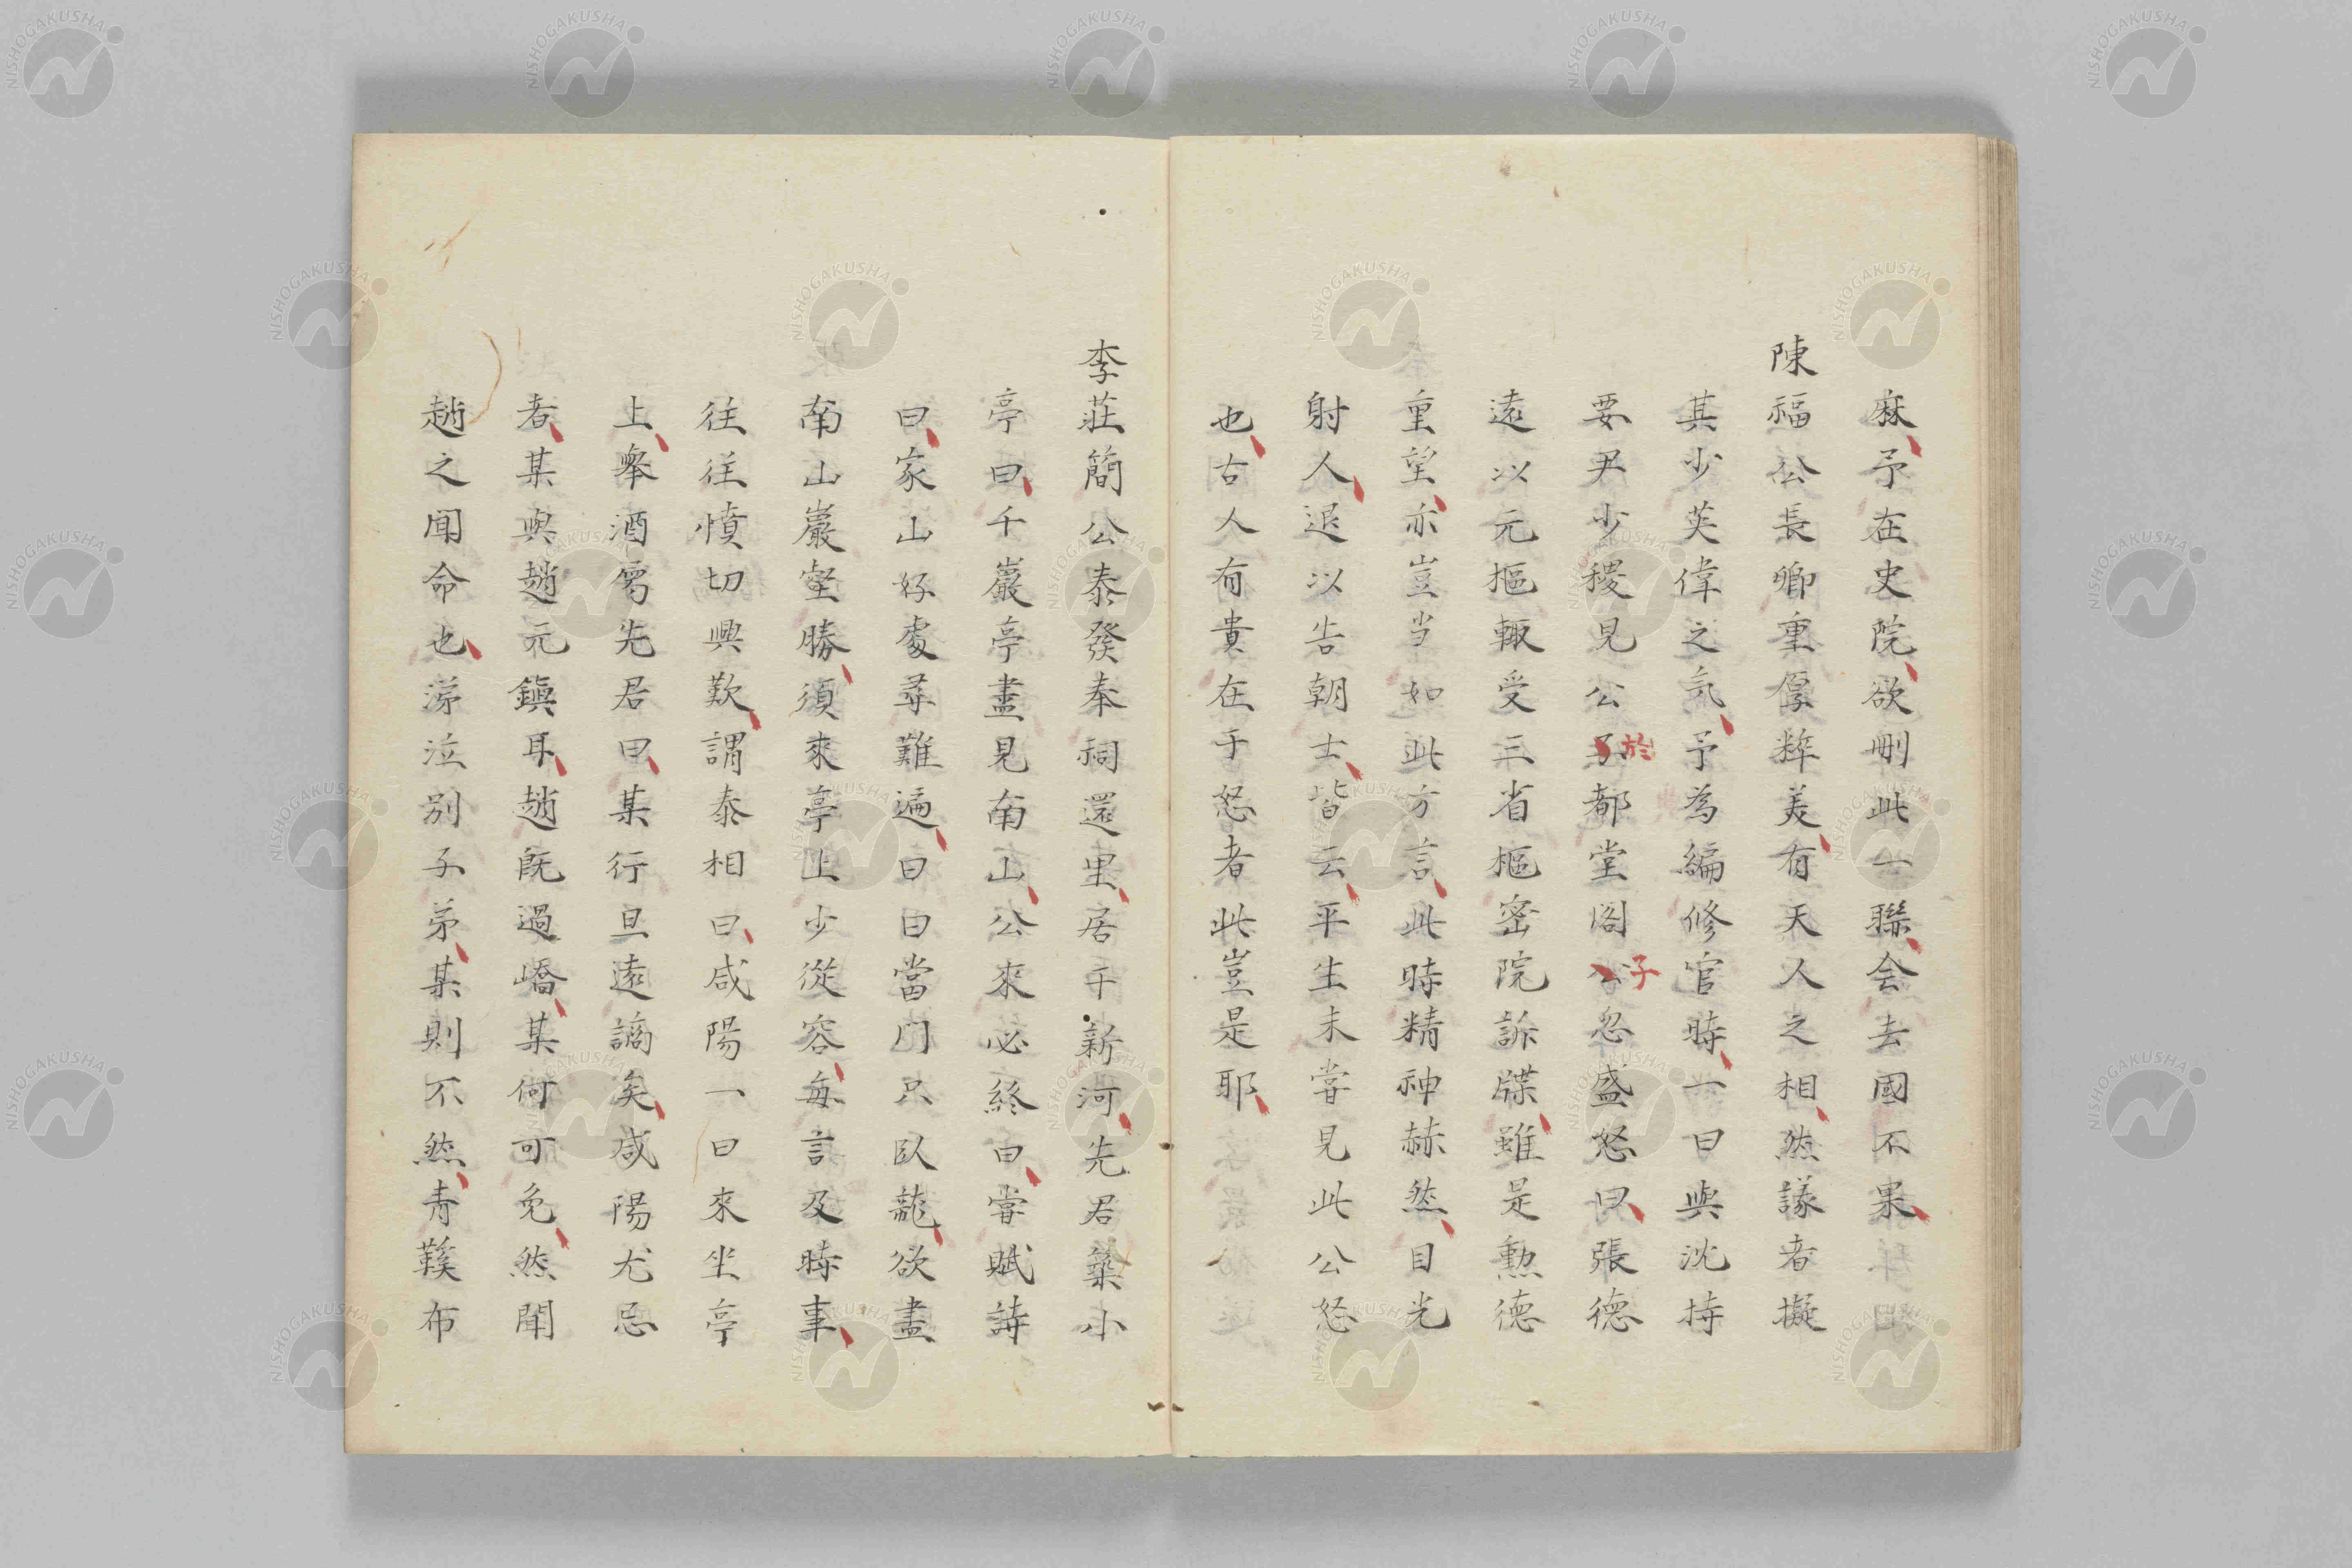 麻予在史院欲刪此一聯会去國不果
陳福公長卿重厚粹美有天人之相然議者擬
其少英偉之気予為編修官時一日與沈持
要尹少稷見公子都堂閣公忽盛怒曰張德
於
子
遠以元樞輙受三省樞密院訴牒雖是勲德
重望亦豈当如此方言此時精神赫然目光
射人退以告朝士皆云平生未甞見此公怒
也古人有貴在于怒者此豈是耶
李莊簡公泰發奉祠還里居于新河先君築小
亭曰千巖亭盡見南山公來必終日甞賦詩
曰家山好處尋難遍日日當门只臥龍欲盡
南山巖壑勝須來亭上少從容每言及時事
往往憤切興歎謂秦相曰咸陽一日來坐亭
上舉酒屬先君曰某行且遠謫矣咸陽尤忌
者某與趙元鎮耳趙既過嶠某何可免然聞
趙之聞命也涕泣别子弟某則不然青鞵布
NISHOGAKUSHA